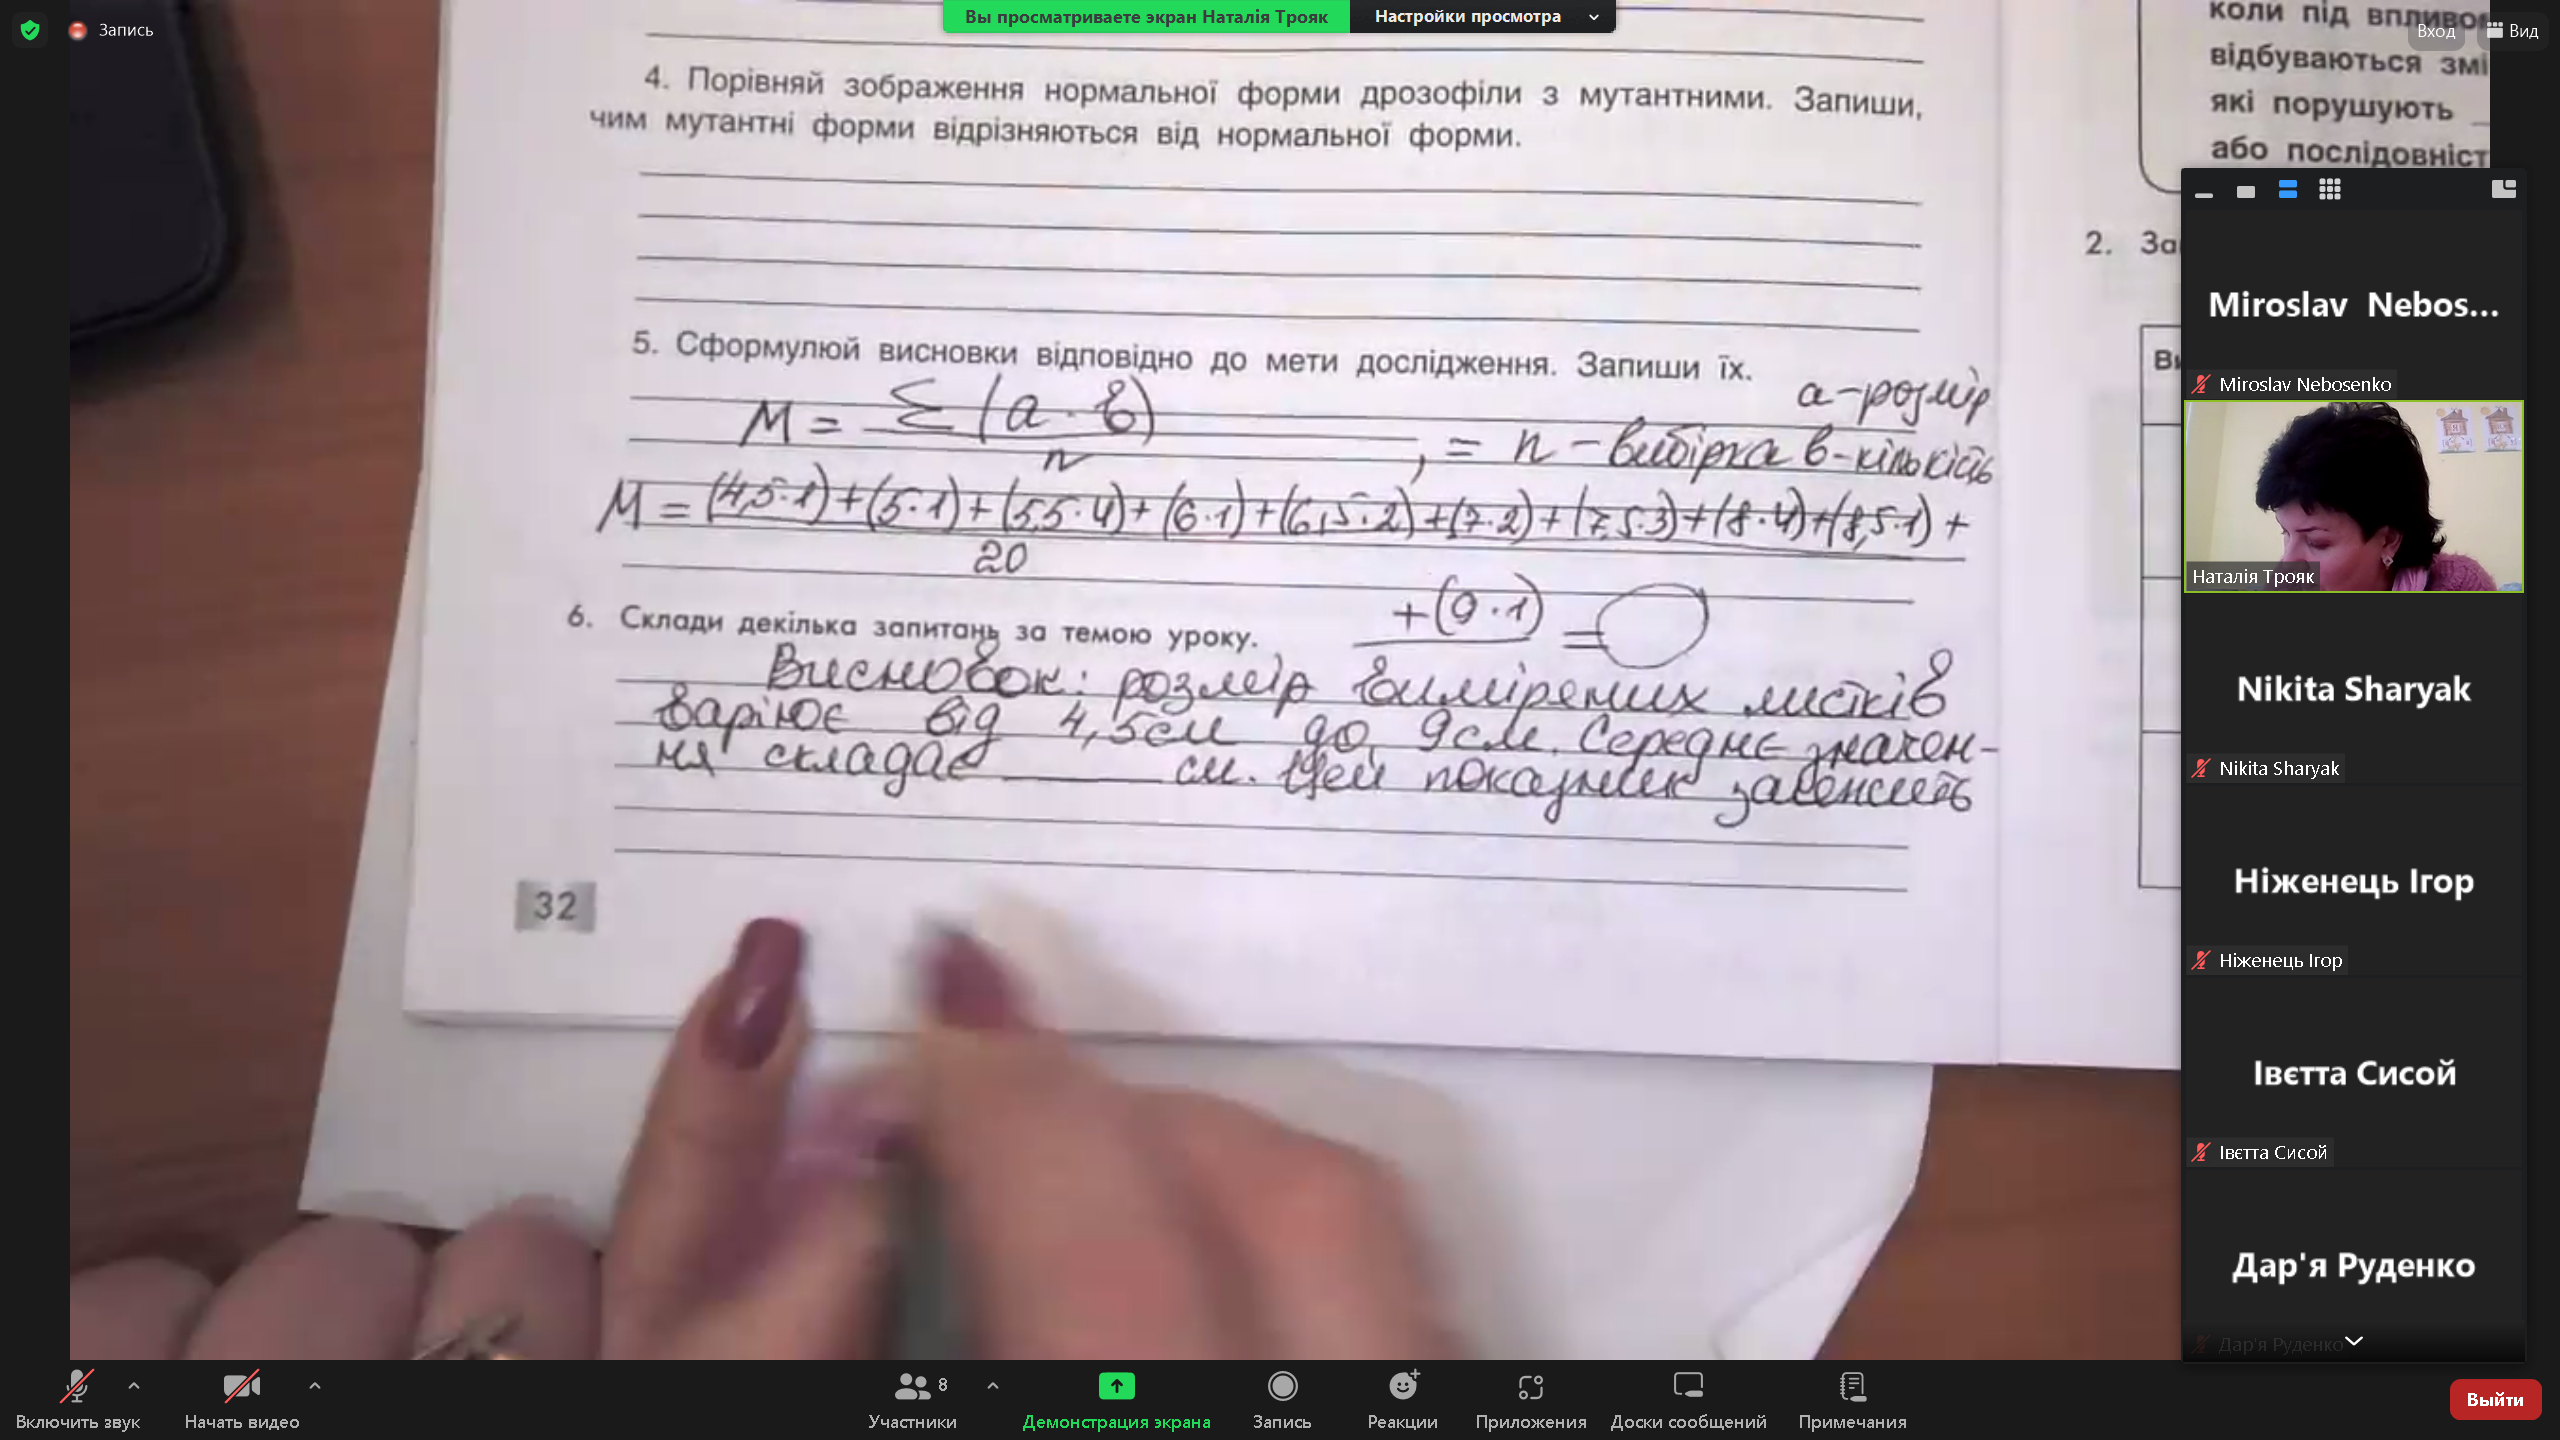 Вы просматриваете экран Наталія Трояк
Настройки просмотра
Запись
Вход
Вид
4. Порівняй зображення нормальної форми дрозофіли з мутантними. Запиши,
чим мутантні форми відрізняються від нормальної форми.
5. Сформулюй висновки відповідно до мети дослідження. Запиши їх.
a - розмір
M = Σ(a · в)
n
, = n - вибірка в - кількість
M = (4,5·1)+(5·1)+(5,5·4)+(6·1)+(6,5·2)+(7·2)+(7,5·3)+(8·4)+(8,5·1)+
20
+(9·1) =
6. Склади декілька запитань за темою уроку.
Висновок: розмір виміряних листків
варіює від 4,5см до 9см. Середнє значен-
ня складає ______ см. Цей показник залежить
32
коли під впливом
відбуваються змі
які порушують
або послідовніст
2. За
Ви
Miroslav Nebos...
Miroslav Nebosenko
Наталія Трояк
Nikita Sharyak
Nikita Sharyak
Ніженець Ігор
Ніженець Ігор
Івєтта Сисой
Івєтта Сисой
Дар'я Руденко
Дар'я Руденко
Включить звук
Начать видео
Участники
8
Демонстрация экрана
Запись
Реакции
Приложения
Доски сообщений
Примечания
Выйти